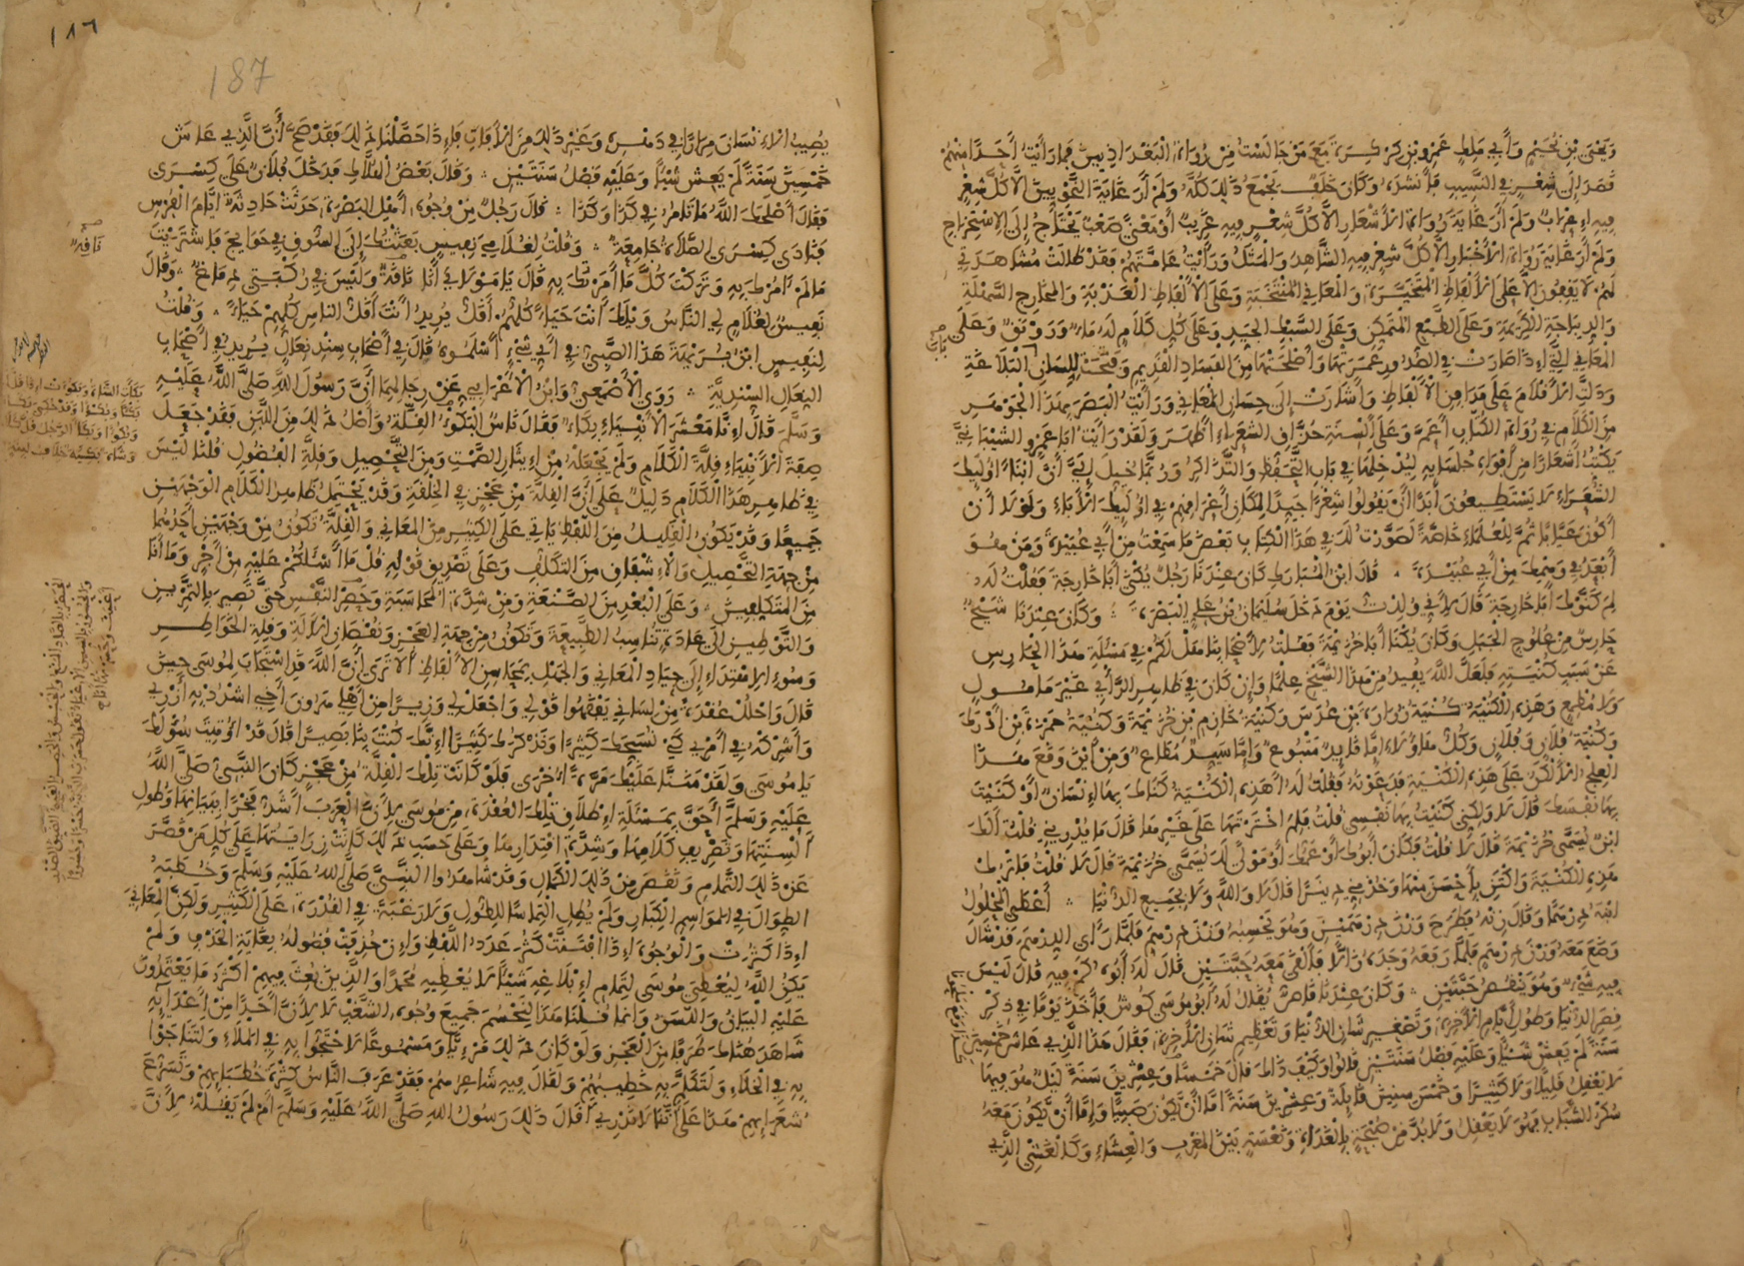 وَيَحْيَى بْنِ نُجَيْمٍ وَأَبِي مَالِكٍ عَمْرِو بْنِ كِرْكِرَةَ مَعَ مَنْ جَالَسْتُ مِنْ رُوَاةِ الْبَغْدَاذِيِّينَ فَمَا رَأَيْتُ أَحَدًا مِنْهُمْ
قَصَدَ إِلَى شِعْرٍ فِي النَّسِيبِ فَأَنْشَدَهُ وَكَانَ خَلَفٌ يَجْمَعُ ذَلِكَ كُلَّهُ وَلَمْ أَرَ غَايَةَ النَّحْوِيِّينَ إِلَّا كُلَّ شِعْرٍ
فِيهِ إِعْرَابٌ وَلَمْ أَرَ غَايَةَ رُوَاةِ الْأَشْعَارِ إِلَّا كُلَّ شِعْرٍ فِيهِ غَرِيبٌ أَوْ مَعْنًى صَعْبٌ يَحْتَاجُ إِلَى الِاسْتِخْرَاجِ
وَلَمْ أَرَ غَايَةَ رُوَاةِ الْأَخْبَارِ إِلَّا كُلَّ شِعْرٍ فِيهِ الشَّاهِدُ وَالْمَثَلُ وَرَأَيْتُ عَامَّتَهُمْ فَقَدْ طَالَتْ مُشَاهَدَتِي
لَهُمْ لَا يَقِفُونَ إِلَّا عَلَى الْأَلْفَاظِ الْمُتَخَيَّرَةِ وَالْمَعَانِي الْمُنْتَخَبَةِ وَعَلَى الْأَلْفَاظِ الْعَذْبَةِ وَالْمَخَارِجِ السَّهْلَةِ
وَالدِّيبَاجَةِ الْكَرِيمَةِ وَعَلَى الطَّبْعِ الْمُتَمَكِّنِ وَعَلَى السَّبْكِ الْجَيِّدِ وَعَلَى كُلِّ كَلَامٍ لَهُ مَاءٌ وَرَوْنَقٌ وَعَلَى
الْمَعَانِي الَّتِي إِذَا صَارَتْ فِي الصُّدُورِ عَمَرَتْهَا وَأَصْلَحَتْهَا مِنَ الْفَسَادِ الْقَدِيمِ وَفَتَحَتْ لِلِّسَانِ الْبَلَاغَةِ
وَدَلَّتِ الْأَقْلَامَ عَلَى مَدَافِنِ الْأَلْفَاظِ وَأَشَارَتْ إِلَى حِسَانِ الْمَعَانِي وَرَأَيْتُ الْبَصَرَ بِهَذَا الْجَوْهَرِ
مِنَ الْكَلَامِ فِي رُوَاةِ الْكُتَّابِ أَعَمَّ وَعَلَى أَلْسِنَةِ حُذَّاقِ الشُّعَرَاءِ أَظْهَرَ وَلَقَدْ رَأَيْتُ أَبَا عَمْرٍو الشَّيْبَانِيَّ
يَكْتُبُ أَشْعَارًا مِنْ أَفْوَاهِ جُلَسَائِهِ لِيُدْخِلَهَا فِي بَابِ التَّحَفُّظِ وَالتَّذَاكُرِ وَرُبَّمَا خُيِّلَ إِلَيَّ أَنَّ أَبْنَاءَ أُولَئِكَ
الشُّعَرَاءِ لَا يَسْتَطِيعُونَ أَبَدًا أَنْ يَقُولُوا شِعْرًا جَيِّدًا لِمَكَانِ أَعْرَاقِهِمْ فِي أُولَئِكَ الْآبَاءِ وَلَوْلَا أَنْ
أَكُونَ عَيَّابًا ثُمَّ لِلْعُلَمَاءِ خَاصَّةً لَصَوَّرْتُ لَكَ فِي هَذَا الْكِتَابِ بَعْضَ مَا سَمِعْتُ مِنْ أَبِي عُبَيْدَةَ وَمَنْ هُوَ
أَبْعَدُ فِي وَهْمِكَ مِنْ أَبِي عُبَيْدَةَ قَالَ ابْنُ الْمُبَارَكِ كَانَ عِنْدَنَا رَجُلٌ يُكْنَى أَبَا خَارِجَةَ فَقُلْتُ لَهُ
لِمَ كَنَّوْكَ أَبَا خَارِجَةَ قَالَ لِأَنِّي وُلِدْتُ يَوْمَ دَخَلَ سُلَيْمَانُ بْنُ عَلِيٍّ الْبَصْرَةَ وَكَانَ عِنْدَنَا شَيْخٌ
حَارِسٌ مِنْ عُلُوجِ الْجَبَلِ وَكَانَ يُكْنَى أَبَا خُزَيْمَةَ فَقُلْتُ لِأَصْحَابِنَا هَلْ لَكُمْ فِي مَسْأَلَةِ هَذَا الْحَارِسِ
عَنْ سَبَبِ كُنْيَتِهِ فَلَعَلَّ اللَّهَ يُفِيدُ مِنْ هَذَا الشَّيْخِ عِلْمًا وَإِنْ كَانَ فِي ظَاهِرِ الرَّأْيِ غَيْرَ مَأْمُولٍ
وَلَا مُطْمِعٍ وَهَذِهِ الْكُنْيَةُ كُنْيَةُ زُرَارَةَ بْنِ عُدَسَ وَكُنْيَةُ خَازِمِ بْنِ خُزَيْمَةَ وَكُنْيَةُ حَمْزَةَ بْنِ أَدْرَكَ
وَكُنْيَةُ فُلَانٍ وَفُلَانٍ وَكُلُّ هَؤُلَاءِ إِمَّا قَائِدٌ مَتْبُوعٌ وَإِمَّا سَيِّدٌ مُطَاعٌ وَمِنْ أَيْنَ وَقَعَ هَذَا
الْعِلْجُ الْأَلْكَنُ عَلَى هَذِهِ الْكُنْيَةِ فَدَعَوْتُهُ فَقُلْتُ لَهُ أَهَذِهِ الْكُنْيَةُ كَنَّاكَ بِهَا إِنْسَانٌ أَوْ كَنَيْتَ
بِهَا نَفْسَكَ قَالَ لَا وَلَكِنِّي كَنَيْتُ بِهَا نَفْسِي قُلْتُ فَلِمَ اخْتَرْتَهَا عَلَى غَيْرِهَا قَالَ مَا يُدْرِينِي قُلْتُ أَلَكَ
ابْنٌ يُسَمَّى خُزَيْمَةَ قَالَ لَا قُلْتُ فَكَانَ أَبُوكَ أَوْ عَمُّكَ أَوْ مَوْلًى لَكَ يُسَمَّى خُزَيْمَةَ قَالَ لَا قُلْتُ فَاتْرُكْ
هَذِهِ الْكُنْيَةَ وَاكْتَنِ بِأَحْسَنَ مِنْهَا وَخُذْ مِنِّي دِينَارًا قَالَ لَا وَاللَّهِ وَلَا بِجَمِيعِ الدُّنْيَا أَعْطَى الْمَحْلُولُ
ابْنَهُ دِرْهَمًا وَقَالَ زِنْهُ فَطَرَحَ وَزْنَ دِرْهَمَيْنِ وَهُوَ يَحْسِبُهُ وَزْنَ دِرْهَمٍ فَلَمَّا رَأَى الدِّرْهَمَ قَدْ شَالَ
وَضَعَ مَعَهُ وَزْنَ دِرْهَمٍ فَلَمَّا رَفَعَهُ وَجَدَهُ زَائِلًا فَأَلْقَى مَعَهُ حَبَّتَيْنِ قَالَ لَهُ أَبُوهُ كَمْ فِيهِ قَالَ لَيْسَ
فِيهِ شَيْءٌ وَهُوَ يَنْقُصُ حَبَّتَيْنِ وَكَانَ عِنْدَنَا قَاصٌّ يُقَالُ لَهُ أَبُو مُوسَى كُوشْ فَأَخَذَ يَوْمًا فِي ذِكْرِ
قِصَرِ الدُّنْيَا وَطُولِ أَيَّامِ الْآخِرَةِ وَتَصْغِيرِ شَأْنِ الدُّنْيَا وَتَعْظِيمِ شَأْنِ الْآخِرَةِ فَقَالَ هَذَا الَّذِي عَاشَ خَمْسِينَ
سَنَةً لَمْ يَعِشْ شَيْئًا وَعَلَيْهِ فَضْلُ سَنَتَيْنِ قَالُوا وَكَيْفَ ذَاكَ قَالَ خَمْسًا وَعِشْرِينَ سَنَةً لَيْلٌ هُوَ فِيهَا
لَا يَعْقِلُ قَلِيلًا وَلَا كَثِيرًا وَخَمْسَ سِنِينَ قَائِلَةً وَعِشْرِينَ سَنَةً إِمَّا أَنْ يَكُونَ صَبِيًّا وَإِمَّا أَنْ يَكُونَ مَعَهُ
سُكْرُ الشَّبَابِ فَهُوَ لَا يَعْقِلُ وَلَا بُدَّ مِنْ صَبْحَةٍ بِالْغَدَاةِ وَنَعْسَةٍ بَيْنَ الْمَغْرِبِ وَالْعِشَاءِ وَكَالْغَشْيِ الَّذِي
١٨٦
187
يُصِيبُ الْإِنْسَانَ مِرَارًا فِي دَهْرِهِ وَغَيْرَ ذَلِكَ مِنَ الْآفَاتِ فَإِذَا حَصَّلْنَا ذَلِكَ فَقَدْ صَحَّ أَنَّ الَّذِي عَاشَ
خَمْسِينَ سَنَةً لَمْ يَعِشْ شَيْئًا وَعَلَيْهِ فَضْلُ سَنَتَيْنِ وَقَالَ بَعْضُ الْفُلَّاطِ قَدْ دَخَلَ فُلَانٌ عَلَى كِسْرَى
فَقَالَ أَصْلَحَكَ اللَّهُ مَا تَأْمُرُ فِي كَذَا وَكَذَا قَالَ رَجُلٌ مِنْ وُجُوهِ أَهْلِ الْبَصْرَةِ حَدَثَتْ حَادِثَةٌ أَيَّامَ الْفُرْسِ
فَنَادَى كِسْرَى الصَّلَاةُ جَامِعَةٌ وَقُلْتُ لِغُلَامِي نَفِيسٍ بَعَثْتُكَ إِلَى السُّوقِ فِي حَوَائِجَ فَاشْتَرَيْتَ
مَا لَمْ آمُرْكَ بِهِ وَتَرَكْتَ كُلَّ مَا أَمَرْتُكَ بِهِ قَالَ يَا مَوْلَايَ أَنَا نَاقَةٌ وَلَيْسَ فِي رُكْبَتِي دِمَاغٌ وَقَالَ
نَفِيسٌ لِغُلَامٍ لِي النَّاسُ وَيْلَكَ أَنْتَ حَيَاءً كُلُّهُمْ أَقَلُّ يُرِيدُ أَنْتَ أَقَلُّ النَّاسِ كُلِّهِمْ حَيَاءً وَقُلْتُ
لِنَفِيسٍ ابْنُ بُرَيْهَةَ هَذَا الصَّبِيُّ فِي أَيِّ شَيْءٍ أَسْلَمُوهُ قَالَ فِي أَصْحَابِ سِنْدِ نِعَالٍ يُرِيدُ فِي أَصْحَابِ
النِّعَالِ السِّنْدِيَّةِ رَوَى الْأَصْمَعِيُّ وَابْنُ الْأَعْرَابِيِّ عَنْ رِجَالِهِمَا أَنَّ رَسُولَ اللَّهِ صَلَّى اللَّهُ عَلَيْهِ
وَسَلَّمَ قَالَ إِنَّا مَعْشَرَ الْأَنْبِيَاءِ بِكَاءٌ فَقَالَ نَاسٌ الْبُكْوءُ الْقِلَّةُ وَأَصْلُ ذَلِكَ مِنَ اللَّبَنِ فَقَدْ جَعَلَ
صِفَةَ الْأَنْبِيَاءِ قِلَّةَ الْكَلَامِ وَلَمْ يَجْعَلْهُ مِنْ إِيثَارِ الصَّمْتِ وَمِنَ التَّحْصِيلِ وَقِلَّةِ الْفُضُولِ قُلْنَا لَيْسَ
فِي ظَاهِرِ هَذَا الْكَلَامِ دَلِيلٌ عَلَى أَنَّ الْقِلَّةَ مِنْ عَجْزٍ فِي الْخِلْقَةِ وَقَدْ يَحْتَمِلُ ظَاهِرُ الْكَلَامِ الْوَجْهَيْنِ
جَمِيعًا وَقَدْ يَكُونُ الْقَلِيلُ مِنَ اللَّفْظِ يَأْتِي عَلَى الْكَثِيرِ مِنَ الْمَعَانِي وَالْقِلَّةُ تَكُونُ مِنْ وَجْهَيْنِ أَحَدُهُمَا
مِنْ جِهَةِ التَّحْصِيلِ وَالْإِشْفَاقِ مِنَ التَّكَلُّفِ وَعَلَى تَصْدِيقِ قَوْلِهِ قُلْ مَا أَسْأَلُكُمْ عَلَيْهِ مِنْ أَجْرٍ وَمَا أَنَا
مِنَ الْمُتَكَلِّفِينَ وَعَلَى الْبُعْدِ مِنَ الصَّنْعَةِ وَمِنْ شِدَّةِ الْمُحَاسَبَةِ وَحَصْرِ النَّفْسِ حَتَّى تَصِيرَ بِالتَّمْرِينِ
وَالتَّوْطِينِ إِلَى عَادَةٍ تُنَاسِبُ الطَّبِيعَةَ وَتَكُونُ مِنْ جِهَةِ الْعَجْزِ وَنُقْصَانِ الْآلَةِ وَقِلَّةِ الْخَوَاطِرِ
وَسُوءِ الِاهْتِدَاءِ إِلَى جِيَادِ الْمَعَانِي وَالْجَهْلِ بِمَحَاسِنِ الْأَلْفَاظِ أَلَا تَرَى أَنَّ اللَّهَ قَدِ اسْتَجَابَ لِمُوسَى حِينَ
قَالَ وَاحْلُلْ عُقْدَةً مِنْ لِسَانِي يَفْقَهُوا قَوْلِي وَاجْعَلْ لِي وَزِيرًا مِنْ أَهْلِي هَارُونَ أَخِي اشْدُدْ بِهِ أَزْرِي
وَأَشْرِكْهُ فِي أَمْرِي كَيْ نُسَبِّحَكَ كَثِيرًا وَنَذْكُرَكَ كَثِيرًا إِنَّكَ كُنْتَ بِنَا بَصِيرًا قَالَ قَدْ أُوتِيتَ سُؤْلَكَ
يَا مُوسَى وَلَقَدْ مَنَنَّا عَلَيْكَ مَرَّةً أُخْرَى فَلَوْ كَانَتْ تِلْكَ الْقِلَّةُ مِنْ عَجْزٍ كَانَ النَّبِيُّ صَلَّى اللَّهُ
عَلَيْهِ وَسَلَّمَ أَحَقَّ بِمَسْئَلَةِ إِطْلَاقِ تِلْكَ الْعُقْدَةِ مِنْ مُوسَى لِأَنَّ الْعَرَبَ أَشَدُّ فَخْرًا بِبَيَانِهَا وَطُولِ
أَلْسِنَتِهَا وَتَصْرِيفِ كَلَامِهَا وَشِدَّةِ اقْتِدَارِهَا وَعَلَى حَسَبِ ذَلِكَ كَانَتْ زِرَايَتُهَا عَلَى كُلِّ مَنْ قَصَّرَ
عَنْ ذَلِكَ التَّمَامِ وَنَقَصَ مِنْ ذَلِكَ الْكَمَالِ وَقَدْ شَاهَدُوا النَّبِيَّ صَلَّى اللَّهُ عَلَيْهِ وَسَلَّمَ وَخُطَبَهُ
الطِّوَالَ فِي الْمَوَاسِمِ الْكِبَارِ وَلَمْ يُطِلِ الْتِمَاسًا لِلطُّولِ وَلَا رَغْبَةً فِي الْقُدْرَةِ عَلَى الْكَثِيرِ وَلَكِنَّ الْمَعَانِيَ
إِذَا كَثُرَتْ وَالْوُجُوهَ إِذَا افْتَنَّتْ كَثُرَ عَدَدُ اللَّفْظِ وَإِنْ حُذِفَتْ فُضُولُهُ بِغَايَةِ الْحَذْفِ وَلَمْ
يَكُنِ اللَّهُ لِيُعْطِيَ مُوسَى لِتَمَامِ إِبْلَاغِهِ شَيْئًا لَا يُعْطِيهِ مُحَمَّدًا وَالَّذِينَ بُعِثَ فِيهِمْ أَكْثَرُ مَا يَعْتَمِدُونَ
عَلَيْهِ الْبَيَانُ وَاللَّسَنُ وَإِنَّمَا قُلْنَا هَذَا لِنَحْسِمَ جَمِيعَ وُجُوهِ الشَّغْبِ لَا لِأَنَّ أَحَدًا مِنْ أَعْدَائِهِ
شَاهَدَ هُنَاكَ طَرَفًا مِنَ الْعَجْزِ وَلَوْ كَانَ ذَلِكَ مَرْئِيًّا وَمَسْمُوعًا لَاحْتَجُّوا بِهِ فِي الْمَلَاءِ وَلَتَنَاجَوْا
بِهِ فِي الْخَلَاءِ وَلَتَكَلَّمَ بِهِ خَطِيبُهُمْ وَلَقَالَ فِيهِ شَاعِرُهُمْ فَقَدْ عَرَفَ النَّاسُ كَثْرَةَ خُطَبَائِهِمْ وَتَسَرُّعَ
شُعَرَائِهِمْ هَذَا عَلَى أَنَّنَا لَا نَدْرِي أَقَالَ ذَلِكَ رَسُولُ اللَّهِ صَلَّى اللَّهُ عَلَيْهِ وَسَلَّمَ أَمْ لَمْ يَقُلْهُ لِأَنَّ